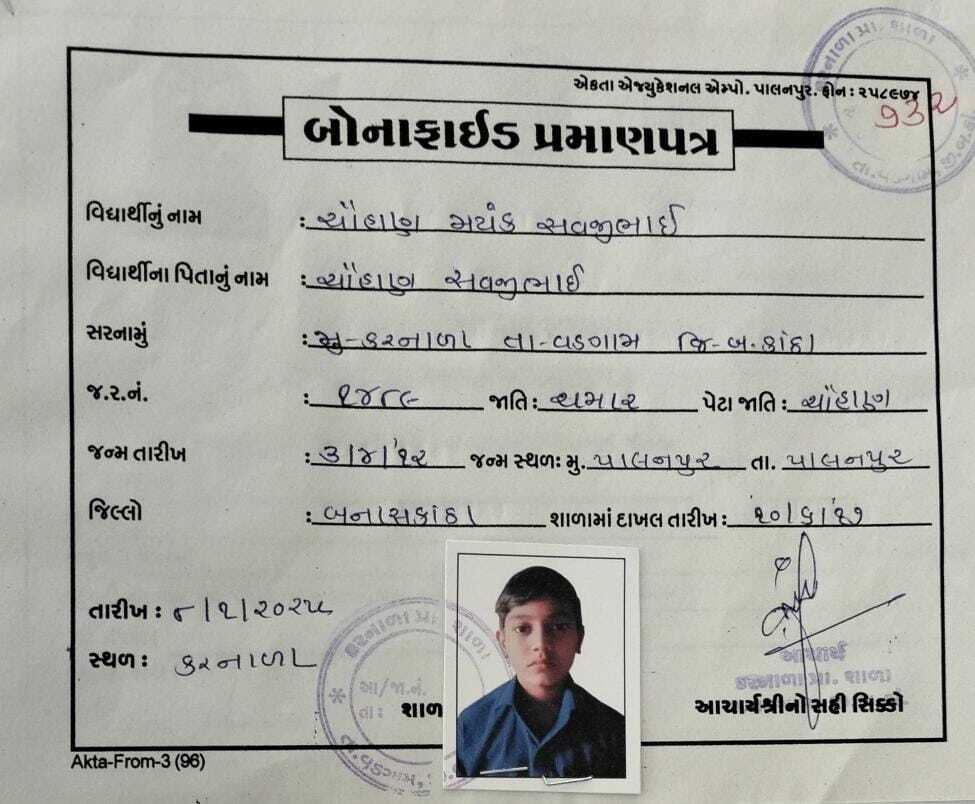 એકતા એજ્યુકેશનલ એમ્પો. પાલનપુર. ફોન : ૨૫૮૯૭૪
૧૩૨
બોનાફાઈડ પ્રમાણપત્ર
વિદ્યાર્થીનું નામ : ચૌહાણ મયંક સવજીભાઈ
વિદ્યાર્થીના પિતાનું નામ : ચૌહાણ સવજીભાઈ
સરનામું : મુ-કરનાળા તા-વડગામ જિ-બ.કાંઠા
જ.ર.નં. : ૧૪૮૯ જાતિ : ચમાર પેટા જાતિ : ચૌહાણ
જન્મ તારીખ : ૩/૪/'૧૨ જન્મ સ્થળઃ મુ. પાલનપુર તા. પાલનપુર
જિલ્લો : બનાસકાંઠા શાળામાં દાખલ તારીખ : ૧૦/૬/'૧૭
તારીખ : ૮/૧/૨૦૨૫
સ્થળ : કરનાળા
કરનાળા પ્રા. શાળા
આ/જા.નં.
તા:
શાળ
આચાર્ય
કરનાળા પ્રા. શાળા
આચાર્યશ્રીનો સહી સિક્કો
Akta-From-3 (96)